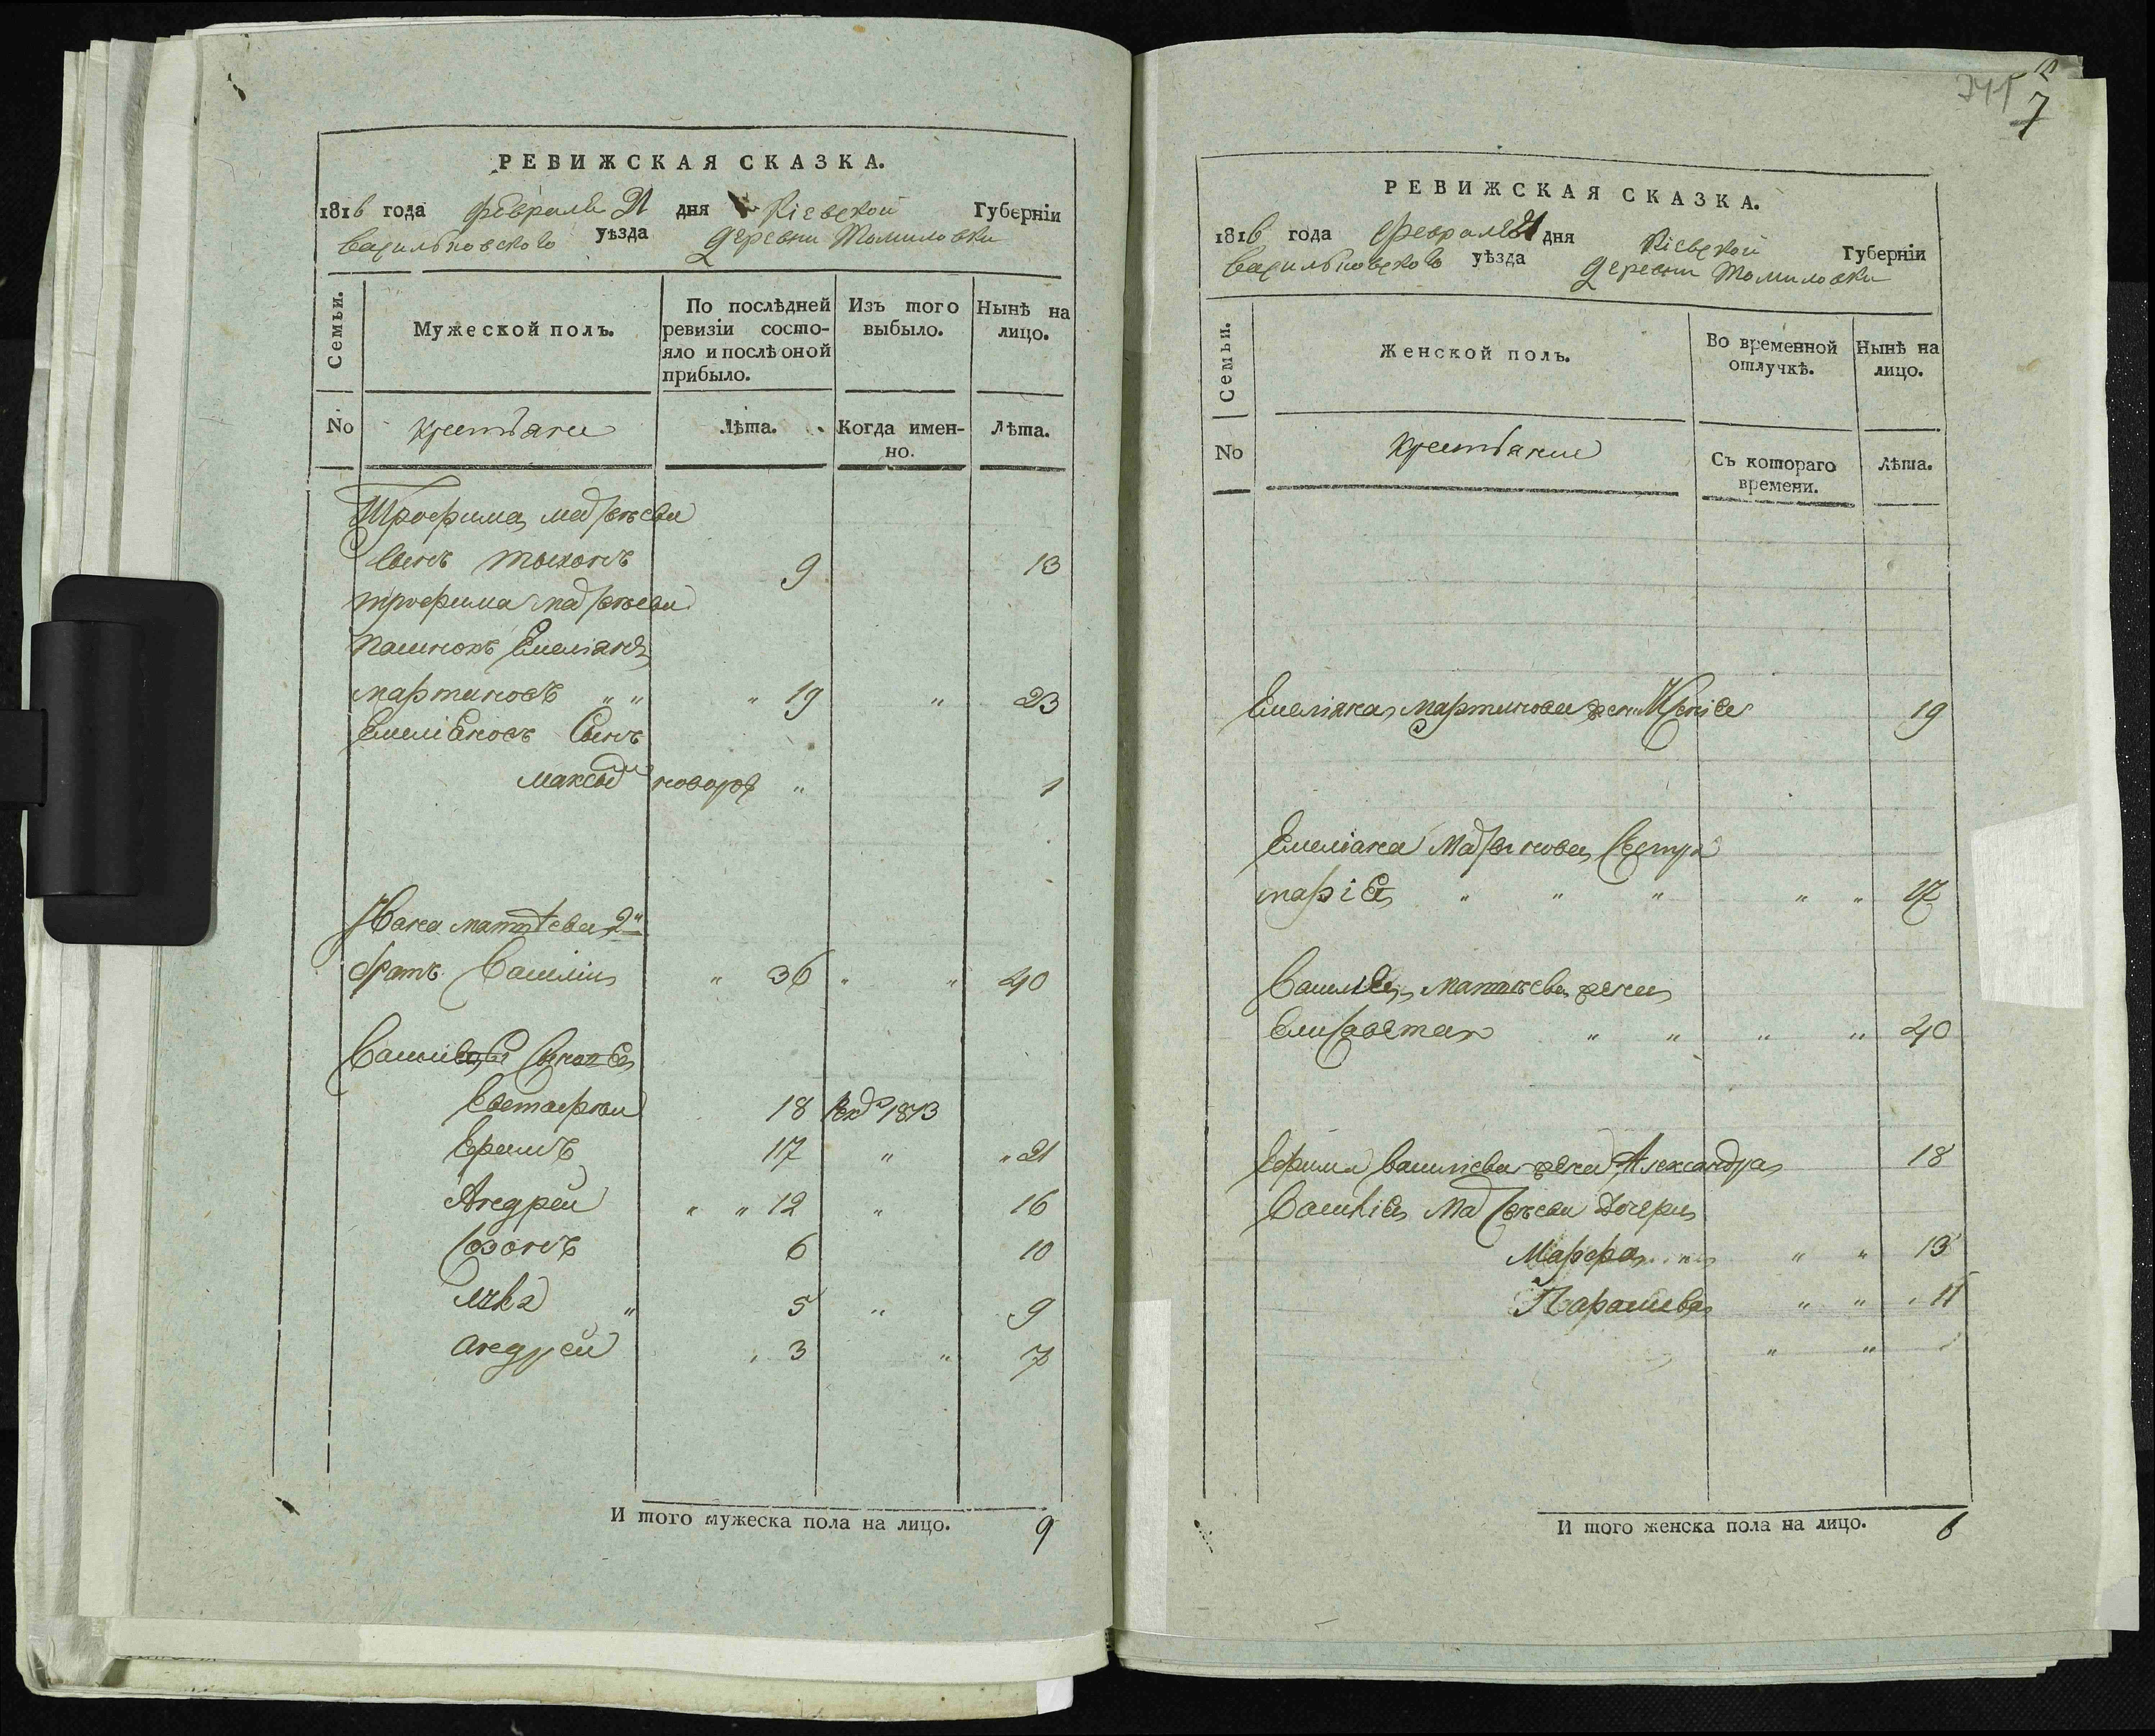 РЕВИЖСКАЯ СКАЗКА.
1816 года февраля 21 дня Кіевской Губерніи
васильковского уѣзда деревни Томиловки
Семьи.
Мужеской полъ.
По послѣдней ревизіи состояло и послѣ оной прибыло.
Изъ того выбыло.
Нынѣ на лицо.
No
крестьяне
Лѣта.
Когда именно.
Лѣта.
Трофима матвѣева
Сынъ тыхонъ 9 13
трофима матвѣева
Емеліанъ
мартиновъ " " " 19 " 23
Емеліановъ Сынъ
максым новорož " 1
Ивана матвѣева 2й
братъ Василій " 36 " " 40
Василія
Евстафий 18 1813
Ефимъ 17 " " 21
Андрей " " 12 " 16
Созонъ 6 10
Лука " 5 " 9
андрей " 3 " 7
И того мужеска пола на лицо. 9
7
РЕВИЖСКАЯ СКАЗКА.
1816 года Февраля 21 дня Кіевской Губерніи
васильковского уѣзда деревни Томиловки
Семьи.
Женской полъ.
Во временной отлучкѣ.
Нынѣ на лицо.
No
крестьяне
Съ котораго времени.
Лѣта.
Емеліана мартинова жена 19
Емеліана Сестра
марія " " " " " 17
Василія матвѣева жена
Елисавета " " " " 40
Ефима василіева жена Александра 18
Василія матвѣева дочери
Марфа " " 13
Параскева " " " 11
" "
И того женска пола на лицо. 6